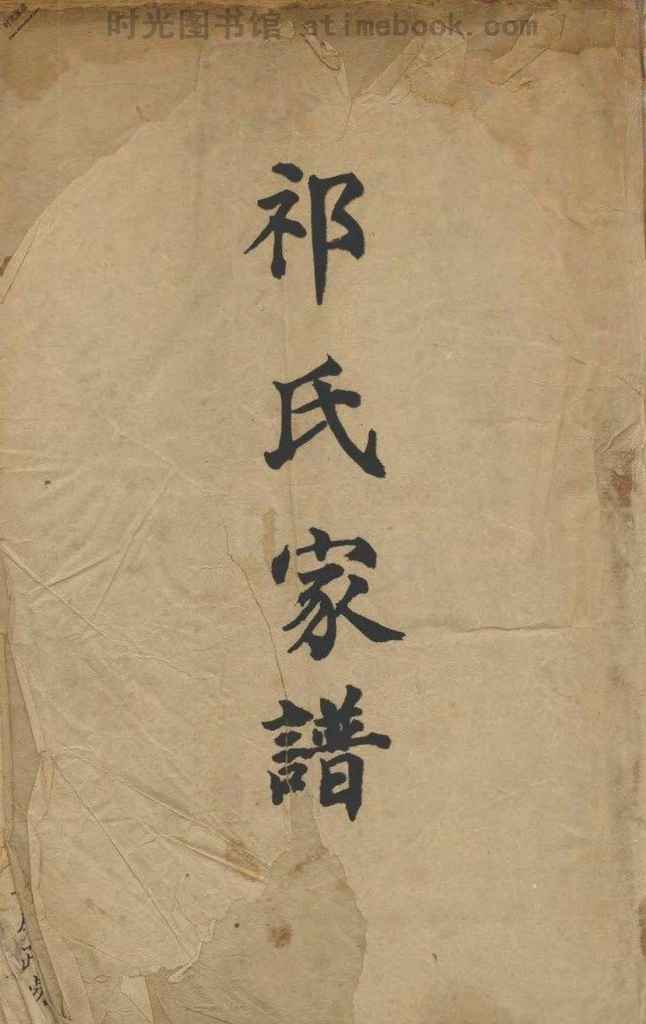 时光图书馆 atimebook.com
祁氏家譜